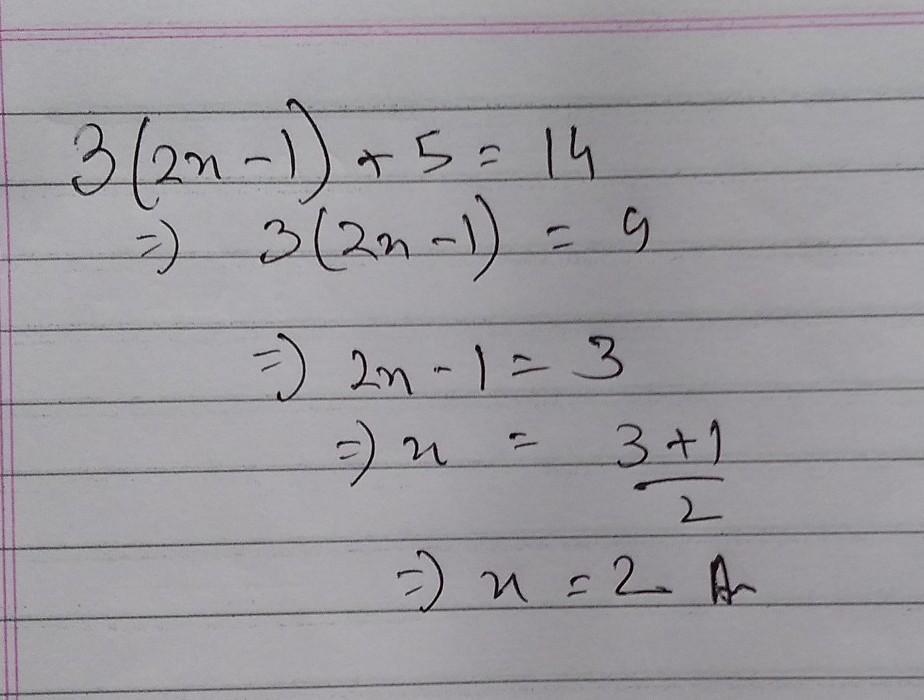 3(2x-1)+5=14
=> 3(2x-1) = 9
=> 2x-1=3
=> x = 3+1/2
=> x=2 An